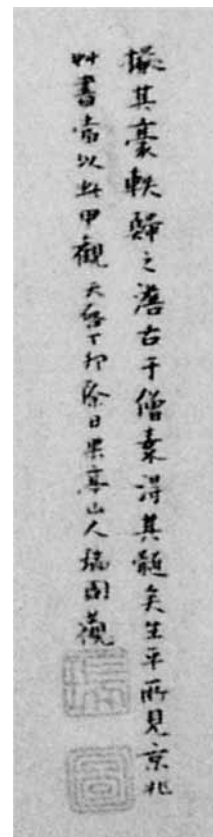 摭其豪軼歸之澹古于僧素得其髓矣生平所見京兆
艸書當以此甲觀天啓丁卯除日果亭山人瑞圖觀
瑞圖